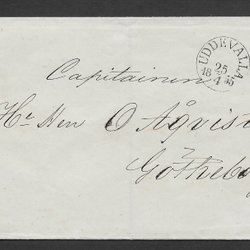 UDDEVALLA
25
18 4 55
Capitainen
Hr Herr O Ågvist
Götheborg